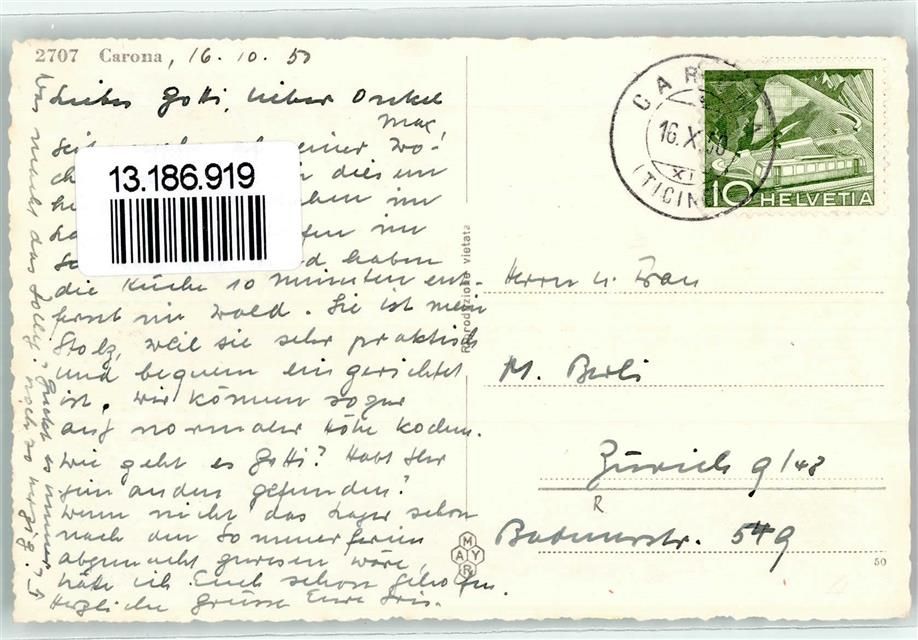 2707 Carona, 16. 10. 50
Liebes Gotti, lieber Onkel
Max,
Seit einer Wo-
13.186.919
diesem
im
im
haben
die Küche 10 Minuten ent-
fernt im Wald. Sie ist mein
Stolz, weil sie sehr praktisch
und bequem eingerichtet
ist. Wir können sogar
auf normaler Höhe kochen.
Wie geht es Gotti? Habt Ihr
gefunden?
Wenn nicht das Lager schon
nach den Sommerferien
abgemacht gewesen wäre,
hätte ich Euch schon geholfen.
Herzliche Grüsse Eure Iris.
Was macht das Dolly? Guckt es immer
noch so
Riproduzione vietata
MAYR
CARONA
16.X.50
XI
(TICINO)
10 HELVETIA
Herrn u. Frau
M. Berli
Zürich 9/48
R
Badenerstr. 549
50